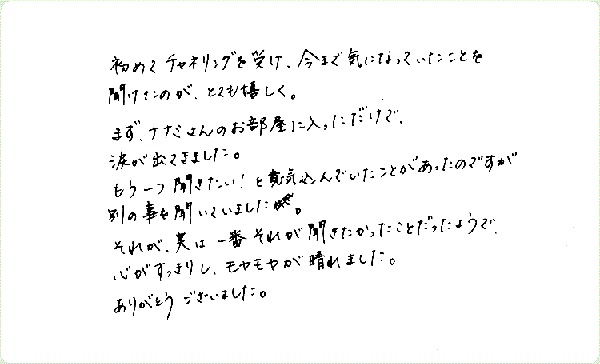 初めてチャネリングを受け、今まで気になっていたことを
聞けたのが、とても嬉しく。
まず、ナナミさんのお部屋に入っただけで、
涙が出てきました。
もう一つ聞きたい!と意気込んでいたことがあったのですが
別の事を聞いていました。
それが、実は一番それが聞きたかったことだったようで、
心がすっきりし、モヤモヤが晴れました。
ありがとうございました。